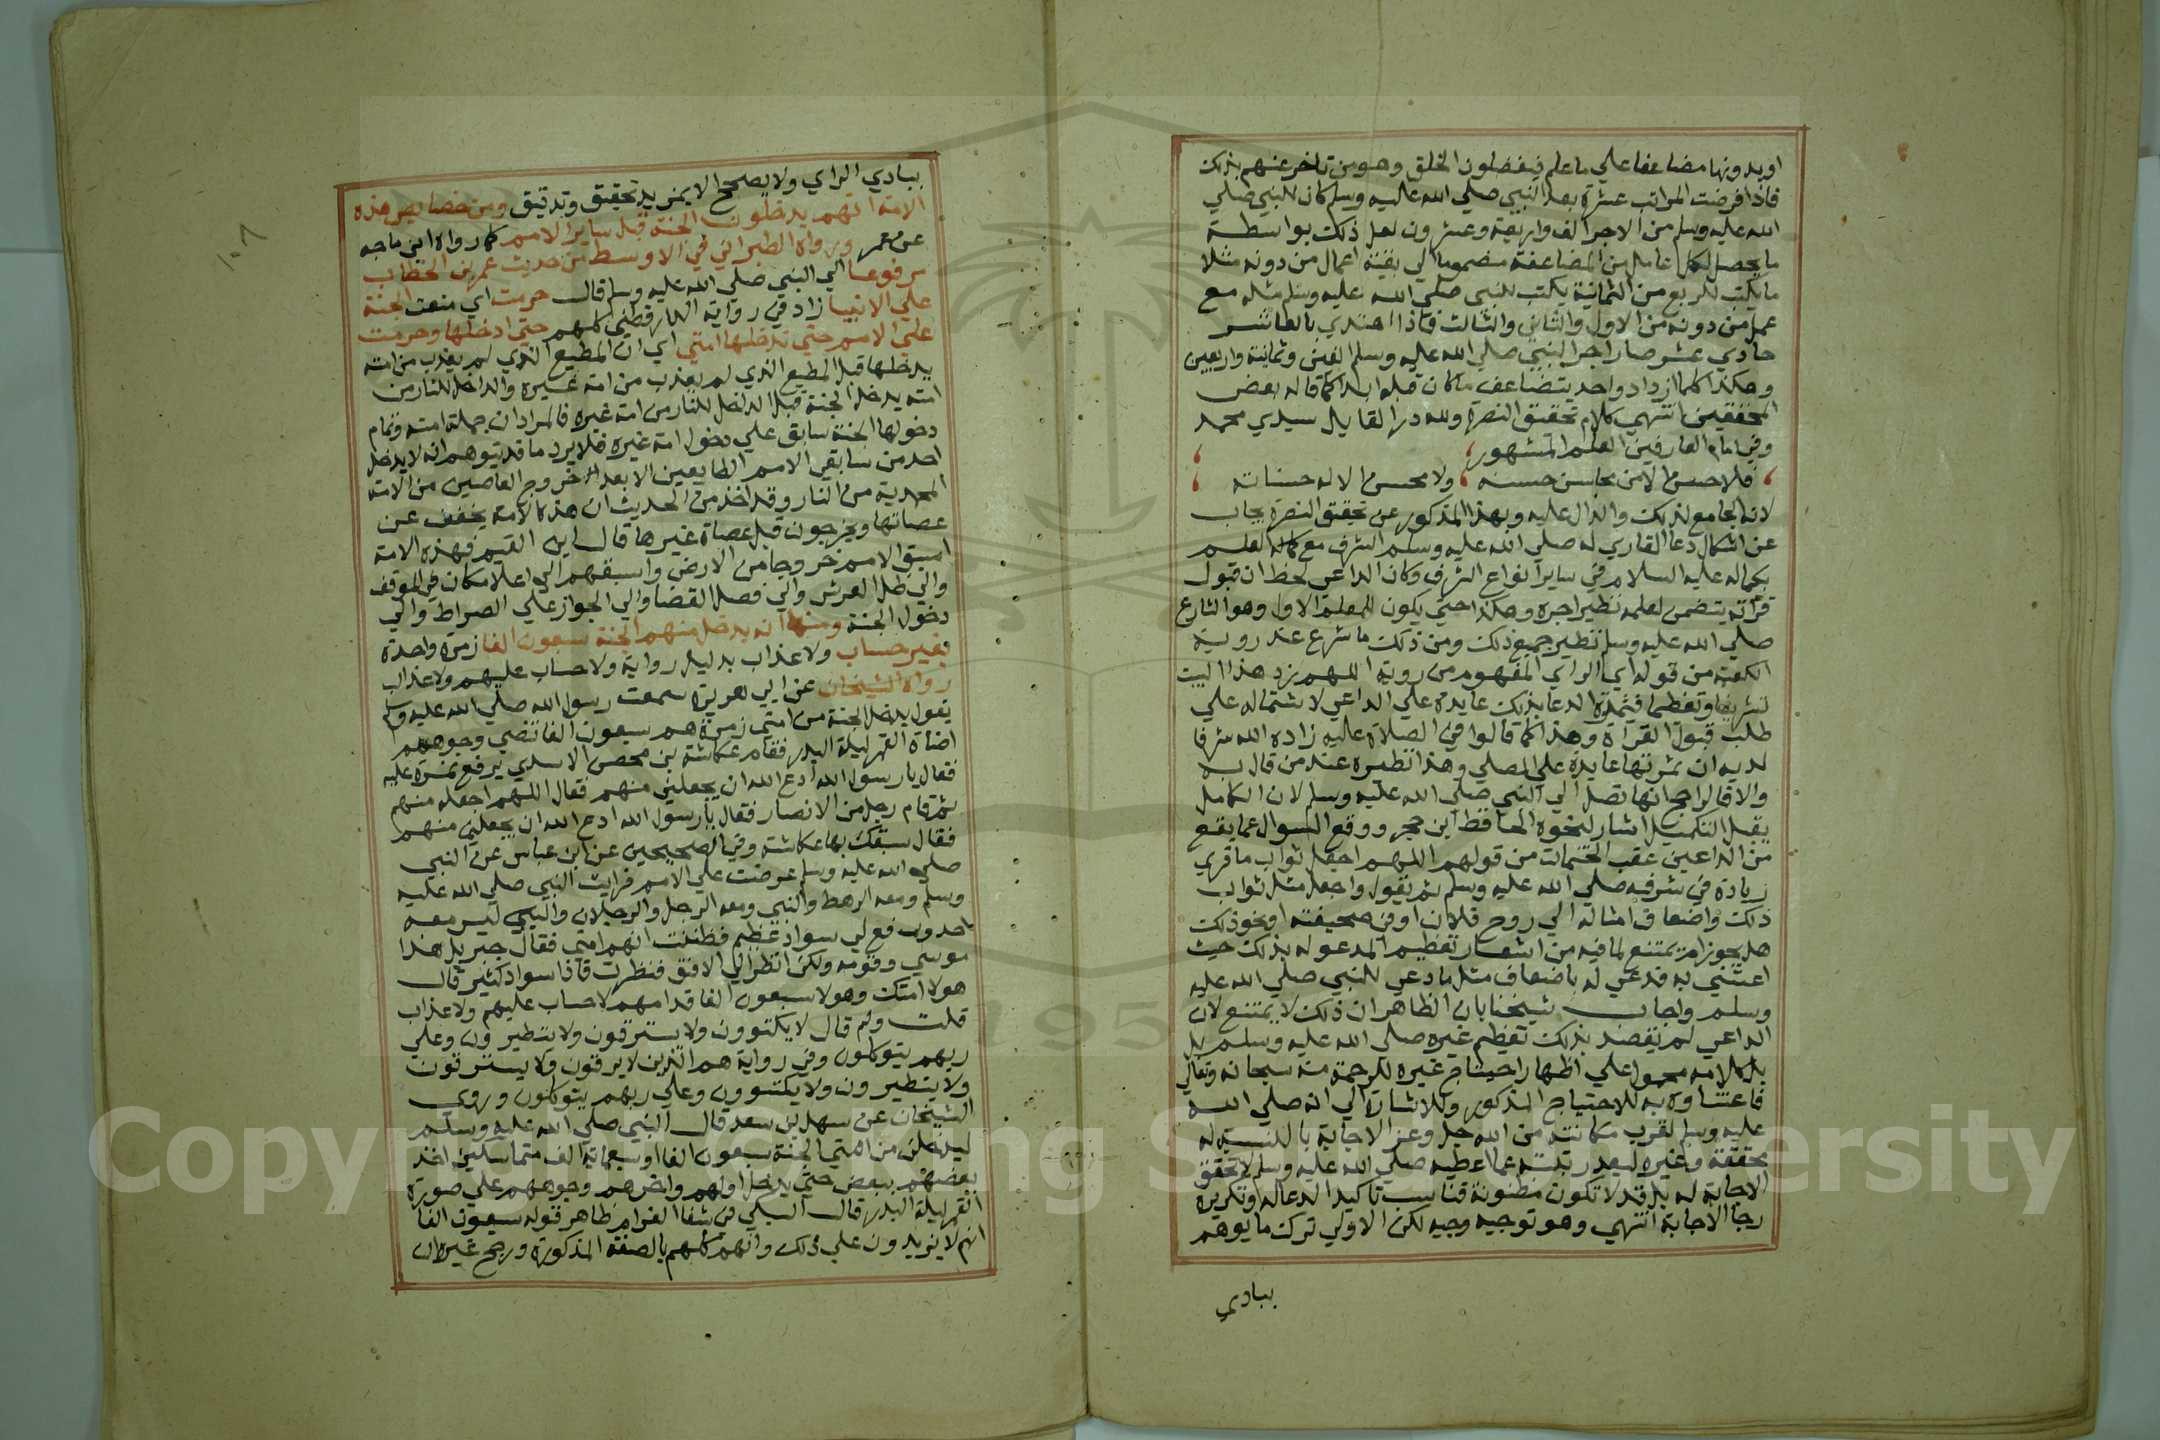 او بدونها مضاعفا علي ما علم فيفضلون الخلق وهو من تاخر عنهم بذلك
فاذا فرضت المراتب عشرة بعد النبي صلي الله عليه وسلم كان للنبي صلي
الله عليه وسلم من الاجر الف واربعة وعشرون لعل ذلك بواسطة
ما يحصل لكل عامل من المضاعفة مضموما الي بقية اعمال من دونه مثلا
ما يكتب للربع من الثمانية يكتب للنبي صلي الله عليه وسلم مثله مع
عمل من دونه من الاول والثاني والثالث فاذا اهتدي بالعاشر
حادي عشر صار اجر النبي صلي الله عليه وسلم الفين وثمانية واربعين
وهكذا كلما ازداد واحد يتضاعف ما كان قبله ابدا كما قاله بعض
المحققين انتهي كلام تحقيق النصرة ولله در القايل سيدي محمد
وفي امام العارفين العلم المشهور
فلا حسن الا من محاسن حسنه ولا محسن الا له حسناته
لانه الجامع لذلك والدال عليه وبهذا المذكور عن تحقيق النصرة يجاب
عن اشكال دعا القاري له صلي الله عليه وسلم الشرف مع كماله العلم
بكماله عليه السلام في ساير انواع الشرف وكان الداعي لحظ ان قبول
قراته يتضمن لعلمه نظير اجره وهكذا حتي يكون للمعلم الاول وهو الشارع
صلي الله عليه وسلم نظير جميع ذلك ومن ذلك ما شرع عند روية
الكعبة من قوله اي الراي المفهوم من روية اللهم زد هذا البيت
تشريفا وتعظيما فثمرة الدعا بذلك عايدة علي الداعي لاشتماله علي
طلب قبول القراة وهذا كما قالوا في الصلاة عليه زاده الله شرفا
لديه ان ثمرتها عايدة علي المصلي وهذا نظيره عند من قال به
والا قالراجح انها تصل الي النبي صلي الله عليه وسلم لان الكامل
يقبل التكميل اشار لنحوه الحافظ ابن حجر ووقع السوال عما يقع
من الداعين عقب الختمات من قولهم اللهم اجعل ثواب ما قري
زيادة في شرفه صلي الله عليه وسلم ثم يقول واجعل مثل ثواب
ذلك واضعاف امثاله الي روح فلان او في صحيفته او نحو ذلك
هل يجوز ام يمتنع لما فيه من اشعار تعظيم المدعو له بذلك حيث
اعتني به فدعي له باضعاف مثل ما دعي للنبي صلي الله عليه
وسلم واجاب شيخنا بان الظاهر ان ذلك لا يمتنع لان
الداعي لم يقصد بذلك تعظيم غيره صلي الله عليه وسلم بل
بل كلامه محمول علي اظهار احتياج غيره للرحمة منه سبحانه وتعالي
فاعتناوه به للاحتياج المذكور وللاشارة الي انه صلي الله
عليه وسلم لقرب مكانته من الله جل وعز الاجابة بالنسبة له
محققة وغيره لبعد رتبته عما اعطيه صلي الله عليه وسلم لا تحقق
الاجابة له بل قد لا تكون مظنونة فناسب تاكيد الدعا له وتكريره
رجا الاجابة انتهي وهو توجيه وجيه لكن الاولي ترك ما يوهم
ببادي
١٠٧
ببادي الراي ولا يصحح الا بمزيد تحقيق وتدقيق ومن خصايص هذه
الامة انهم يدخلون الجنة قبل ساير الامم كما رواه ابن ماجه
عن عمر ورواه الطبراني في الاوسط من حديث عمر بن الخطاب
مرفوعا الي النبي صلي الله عليه وسلم قال حرمت اي منعت الجنة
علي الانبيا زاد في رواية الدارقطني كلهم حتي ادخلها وحرمت
علي الامم حتي تدخلها امتي اي ان المطيع الذي لم يعذب من امته
يدخلها قبل المطيع الذي لم يعذب من امة غيره والداخل للنار من
امته يدخل الجنة قبل الداخل للنار من امة غيره فالمراد ان جملة امته وتمام
دخولها الجنة سابق علي دخول امة غيره فلا يرد ما قد يتوهم انه لا يدخل
احد من سابقي الامم الطايعين الا بعد خروج العاصين من الامة
المحمدية من النار وقد اخذ من الحديث ان هذه الامة يخفف عن
عصاتها ويخرجون قبل عصاة غيرها قال ابن القيم فهذه الامة
اسبق الامم خروجا من الارض واسبقهم الي اعلا مكان في الموقف
والي ظل العرش والي فصل القضا والي الجواز علي الصراط والي
دخول الجنة ومنها انه يدخل منهم الجنة سبعون الفا زمرة واحدة
بغير حساب ولا عذاب بدليل رواية ولا حساب عليهم ولا عذاب
رواه الشيخان عن ابي هريرة سمعت رسول الله صلي الله عليه وسلم
يقول يدخل الجنة من امتي زمرة هم سبعون الفا تضي وجوههم
اضاة القمر ليلة البدر فقام عكاشة بن محصن الاسدي يرفع نمرة عليه
فقال يا رسول الله ادع الله ان يجعلني منهم فقال اللهم اجعله منهم
ثم قام رجل من الانصار فقال يا رسول الله ادع الله ان يجعلني منهم
فقال سبقك بها عكاشة وفي الصحيحين عن ابن عباس عن النبي
صلي الله عليه وسلم عرضت علي الامم فرايت النبي صلي الله عليه
وسلم ومعه الرهط والنبي ومعه الرجل والرجلان والنبي ليس معه
احد ورفع لي سواد عظيم فظننت انهم امتي فقال جبريل هذا
موسي وقومه ولكن انظر الي الافق فنظرت فاذا سواد كثير قال
هولا امتك وهولا سبعون الفا قدامهم لا حساب عليهم ولا عذاب
قلت ولم قال لا يكتوون ولا يسترقون ولا يتطيرون وعلي
ربهم يتوكلون وفي رواية هم الذين لا يرقون ولا يسترقون
ولا يتطيرون ولا يكتوون وعلي ربهم يتوكلون وروي
الشيخان عن سهل بن سعد قال النبي صلي الله عليه وسلم
ليدخلن من امتي الجنة سبعون الفا او سبعماية الف متماسكين اخذ
بعضهم ببعض حتي يدخل اولهم واخرهم وجوههم علي صورة
القمر ليلة البدر قال السبكي في شفا الغرام ظاهر قوله سبعون الفا
انهم لا يزيدون علي ذلك وانهم كلهم بالصفة المذكورة ورجح غيره ان
Copyright © King Saud University
195